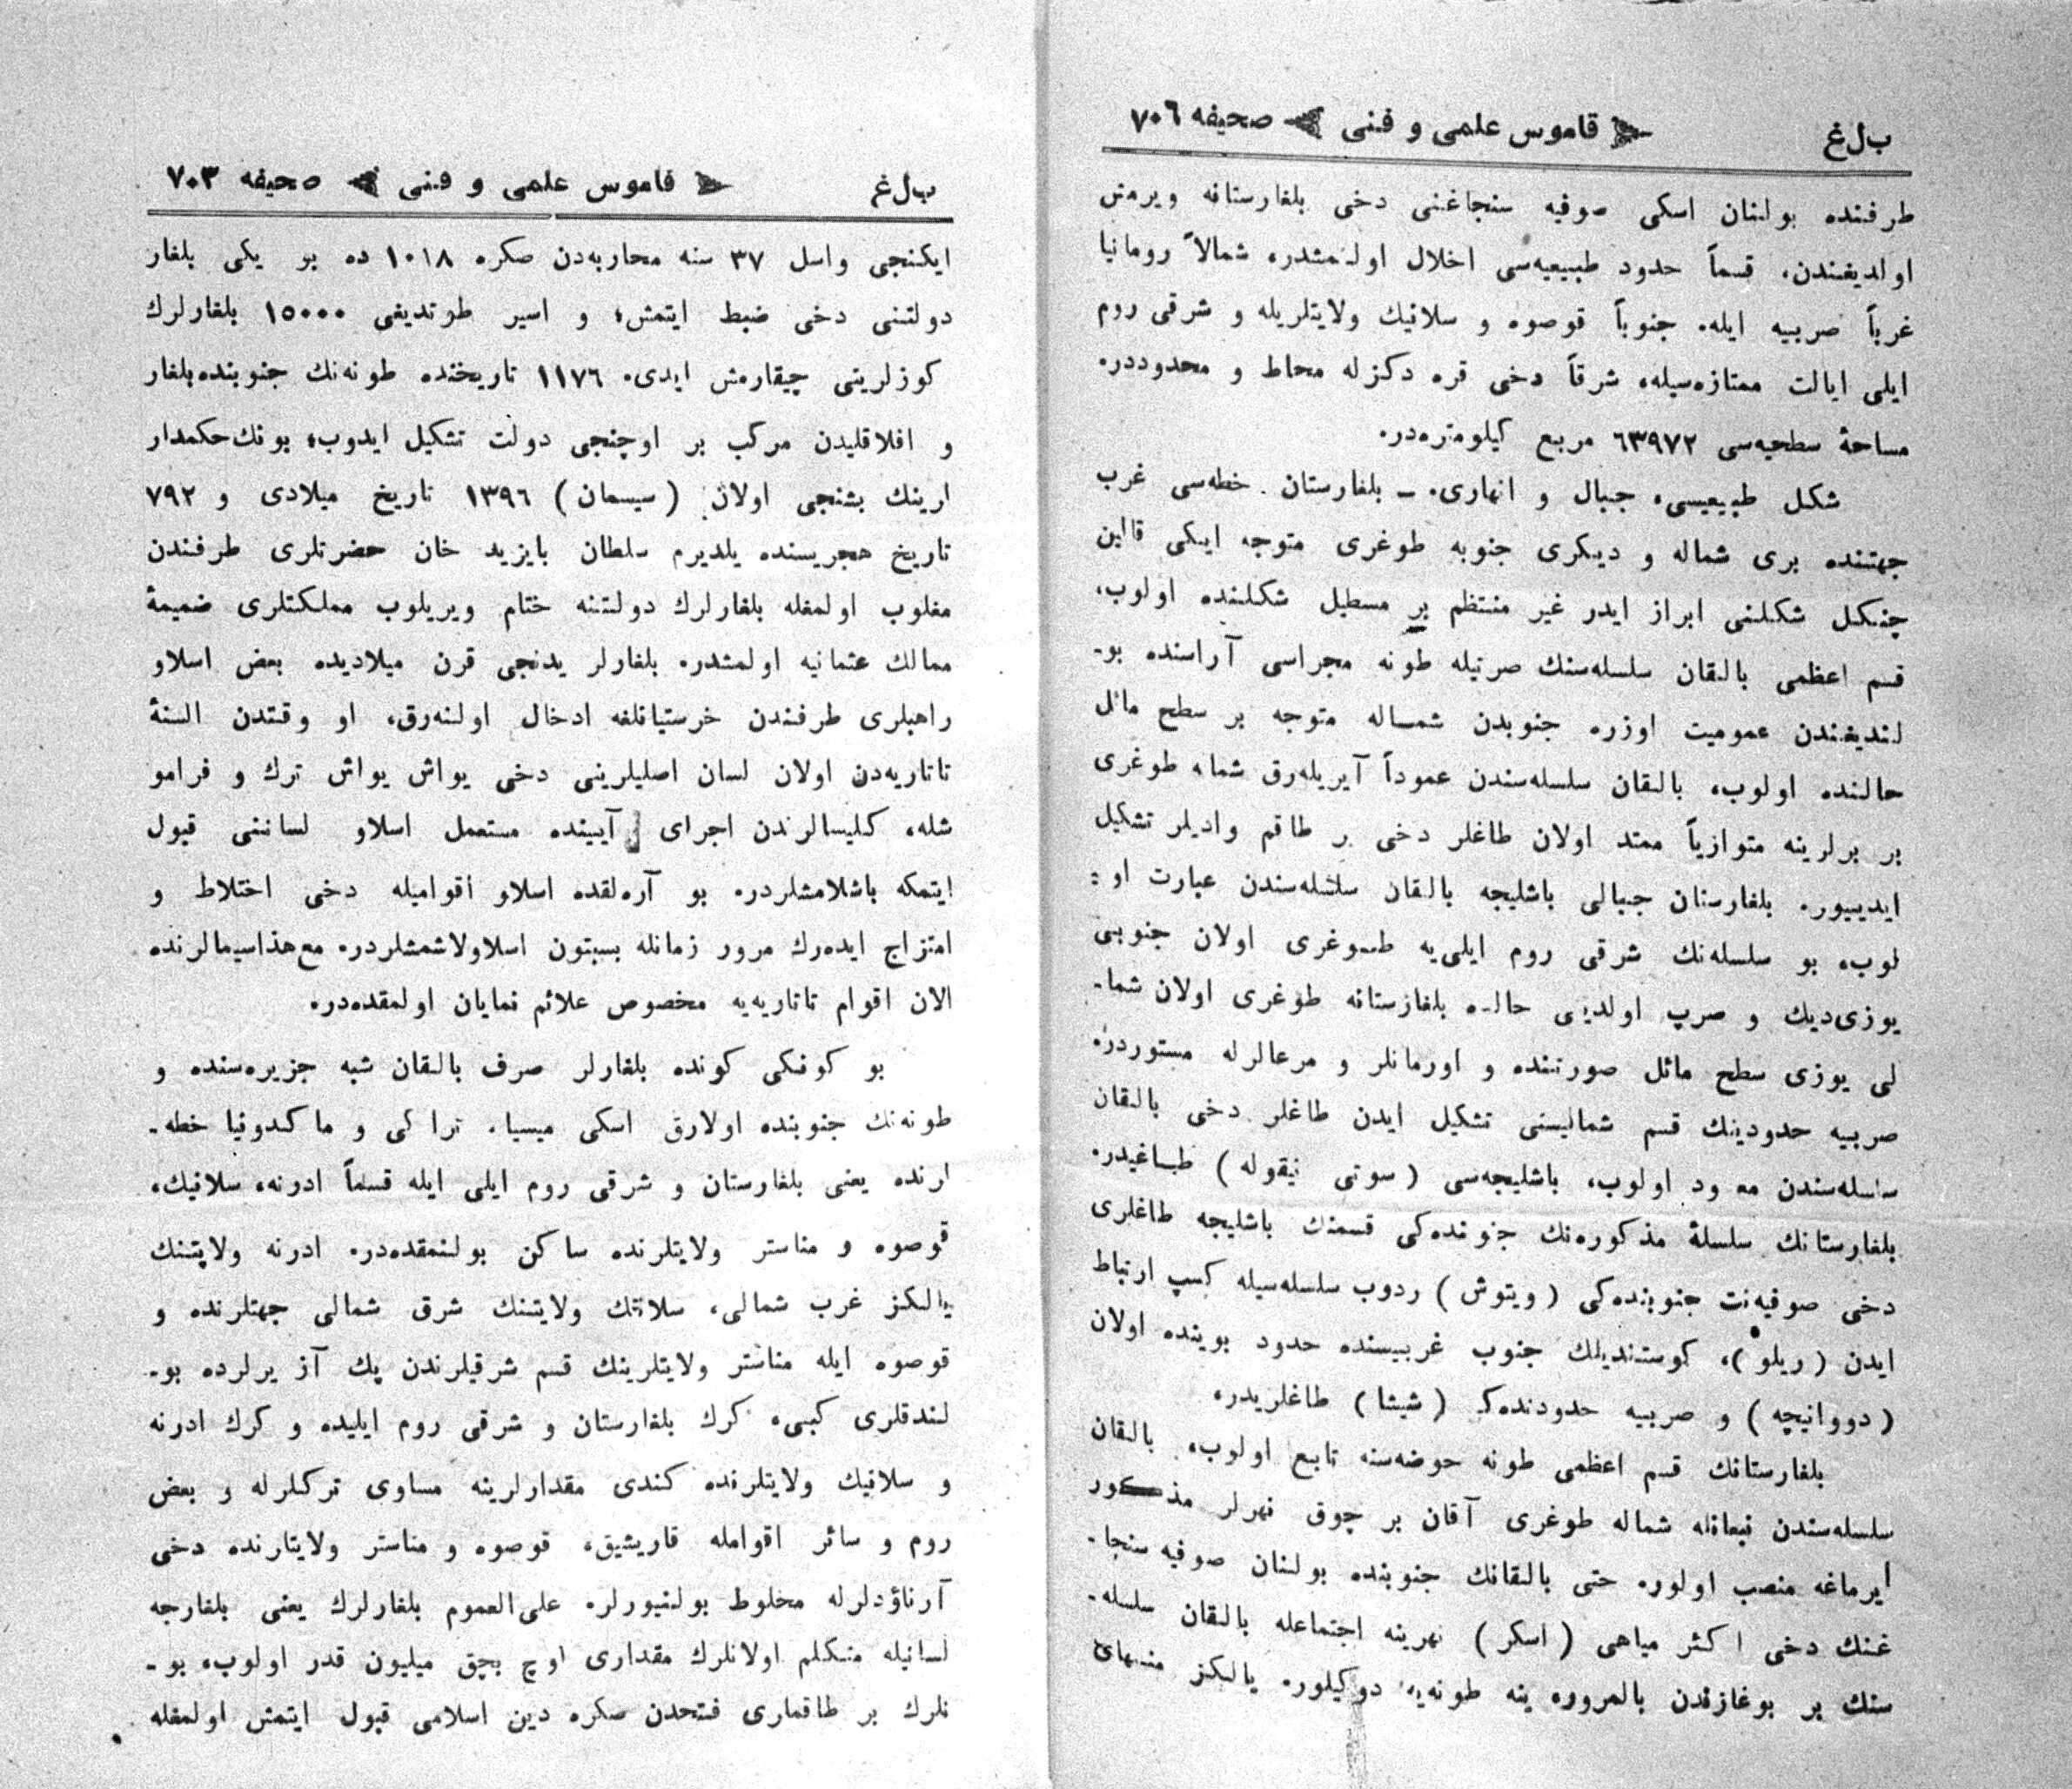 ب ل غ قاموس علمی و فنی صحیفه ٧٠٦
طرفنده بولنان اسكی صوفیه سنجاغنی دخی بلغارستانه ویرمش
اولدیغندن، قسماً حدود طبیعیه‌سی اخلال اولنمشدر. شمالاً رومانیا
غرباً صربیه ایله، جنوباً قوصوه و سلانیك ولایتلریله و شرقی روم
ایلی ایالت ممتازه‌سیله، شرقاً دخی قره دكزله محاط و محدوددر.
مساحهٔ سطحیه‌سی ٦٣٩٧٢ مربع كیلومتره‌در.
شكل طبیعیسی، جبال و انهاری. ـ بلغارستان خطه‌سی غرب
جهتنده بری شماله و دیكری جنوبه طوغری متوجه ایكی قالین
چنكل شكلنی ابراز ایدر غیر منتظم بر مسطیل شكلنده اولوب،
قسم اعظمی بالقان سلسله‌سنك صرتیله طونه مجراسی آراسنده بو-
لندیغندن عمومیت اوزره جنوبدن شماله متوجه بر سطح مائل
حالنده اولوب، بالقان سلسله‌سندن عموداً آیریله‌رق شماله طوغری
بر برلرینه متوازیاً ممتد اولان طاغلر دخی بر طاقم وادیلر تشكیل
ایدییور. بلغارستان جبالی باشلیجه بالقان سلسله‌سندن عبارت او-
لوب، بو سلسله‌نك شرقی روم ایلی‌یه طوغری اولان جنوبی
یوزی دیك و صرپ اولدیغی حالده بلغارستانه طوغری اولان شما-
لی یوزی سطح مائل صورتنده و اورمانلر و مرعالرله مستوردر.
صربیه حدودینك قسم شمالیسنی تشكیل ایدن طاغلر دخی بالقان
سلسله‌سندن معدود اولوب، باشلیجه‌سی (سوتی نیقوله) طاغیدر.
بلغارستانك سلسلهٔ مذكوره‌نك جنوبنده‌كی قسمنك باشلیجه طاغلری
دخی صوفیه‌نك جنوبنده‌كی (ویتوش) ردوب سلسله‌سیله كسپ ارتباط
ایدن (ریلو)، كوستندیلك جنوب غربیسنده حدود بوینده اولان
(دووانیچه) و صربیه حدودنده‌كی (شیشا) طاغلریدر.
بلغارستانك قسم اعظمی طونه حوضه‌سنه تابع اولوب، بالقان
سلسله‌سندن نبعانله شماله طوغری آقان بر چوق نهرلر مذكور
ایرماغه منصب اولور. حتی بالقانك جنوبنده بولنان صوفیه سنجا-
غنك دخی اكثر میاهی (اسكر) نهرینه اجتماعله بالقان سلسله-
سنك بر بوغازندن بالمرور ینه طونه‌یه دوكیلور. یالكز منتهای
ب ل غ قاموس علمی و فنی صحیفه ٧٠٣
ایكنجی واسل ٣٧ سنه محاربه‌دن صكره ١٠١٨ ده بر یكی بلغار
دولتنی دخی ضبط ایتمش، و اسیر طوتدیغی ١٥٠٠٠ بلغارلرك
كوزلرینی چیقارمش ایدی. ١١٧٦ تاریخنده طونه‌نك جنوبنده بلغار
و افلاقلیدن مركب بر اوچنجی دولت تشكیل ایدوب، بونك حكمدار
لرینك بشنجی اولان (سیسمان) ١٣٩٦ تاریخ میلادی و ٧٩٢
تاریخ هجریسنده یلدیرم سلطان بایزید خان حضرتلری طرفندن
مغلوب اولمغله بلغارلرك دولتنه ختام ویریلوب مملكتلری ضمیمهٔ
ممالك عثمانیه اولمشدر. بلغارلر یدنجی قرن میلادیده بعض اسلاو
راهبلری طرفندن خرستیانلغه ادخال اولنه‌رق، او وقتدن السنهٔ
تاتاریه‌دن اولان لسان اصلیلرینی دخی یواش یواش ترك و فرامو
شله، كلیسالرندن اجرای آییننده مستعمل اسلاو لساننی قبول
ایتمكه باشلامشلردر. بو آره‌لقده اسلاو اقوامیله دخی اختلاط و
امتزاج ایده‌رك مرور زمانله بسبتون اسلاولاشمشلردر. مع‌هذا سیمالرنده
الان اقوام تاتاریه‌یه مخصوص علائم نمایان اولمقده‌در.
بو كونكی كونده بلغارلر صرف بالقان شبه جزیره‌سنده و
طونه‌نك جنوبنده اولارق اسكی میسیا، تراكی و ماكدونیا خطه-
لرنده یعنی بلغارستان و شرقی روم ایلی ایله قسماً ادرنه، سلانیك،
قوصوه و مناستر ولایتلرنده ساكن بولنمقده‌در. ادرنه ولایتنك
یالكز غرب شمالی، سلانیك ولایتنك شرق شمالی جهتلرنده و
قوصوه ایله مناستر ولایتلرینك قسم شرقیلرندن پك آز یرلرده بو-
لندقلری كبی، كرك بلغارستان و شرقی روم ایلیده و كرك ادرنه
و سلانیك ولایتلرنده كندی مقدارلرینه مساوی تركلرله و بعض
روم و سائر اقوامله قاریشیق، قوصوه و مناستر ولایتلرنده دخی
آرناؤدلرله مخلوط بولنیورلر. علی‌العموم بلغارلرك یعنی بلغارجه
لسانیله متكلم اولانلرك مقداری اوچ بچق میلیون قدر اولوب، بو-
نلرك بر طاقملری فتحدن صكره دین اسلامی قبول ایتمش اولمغله